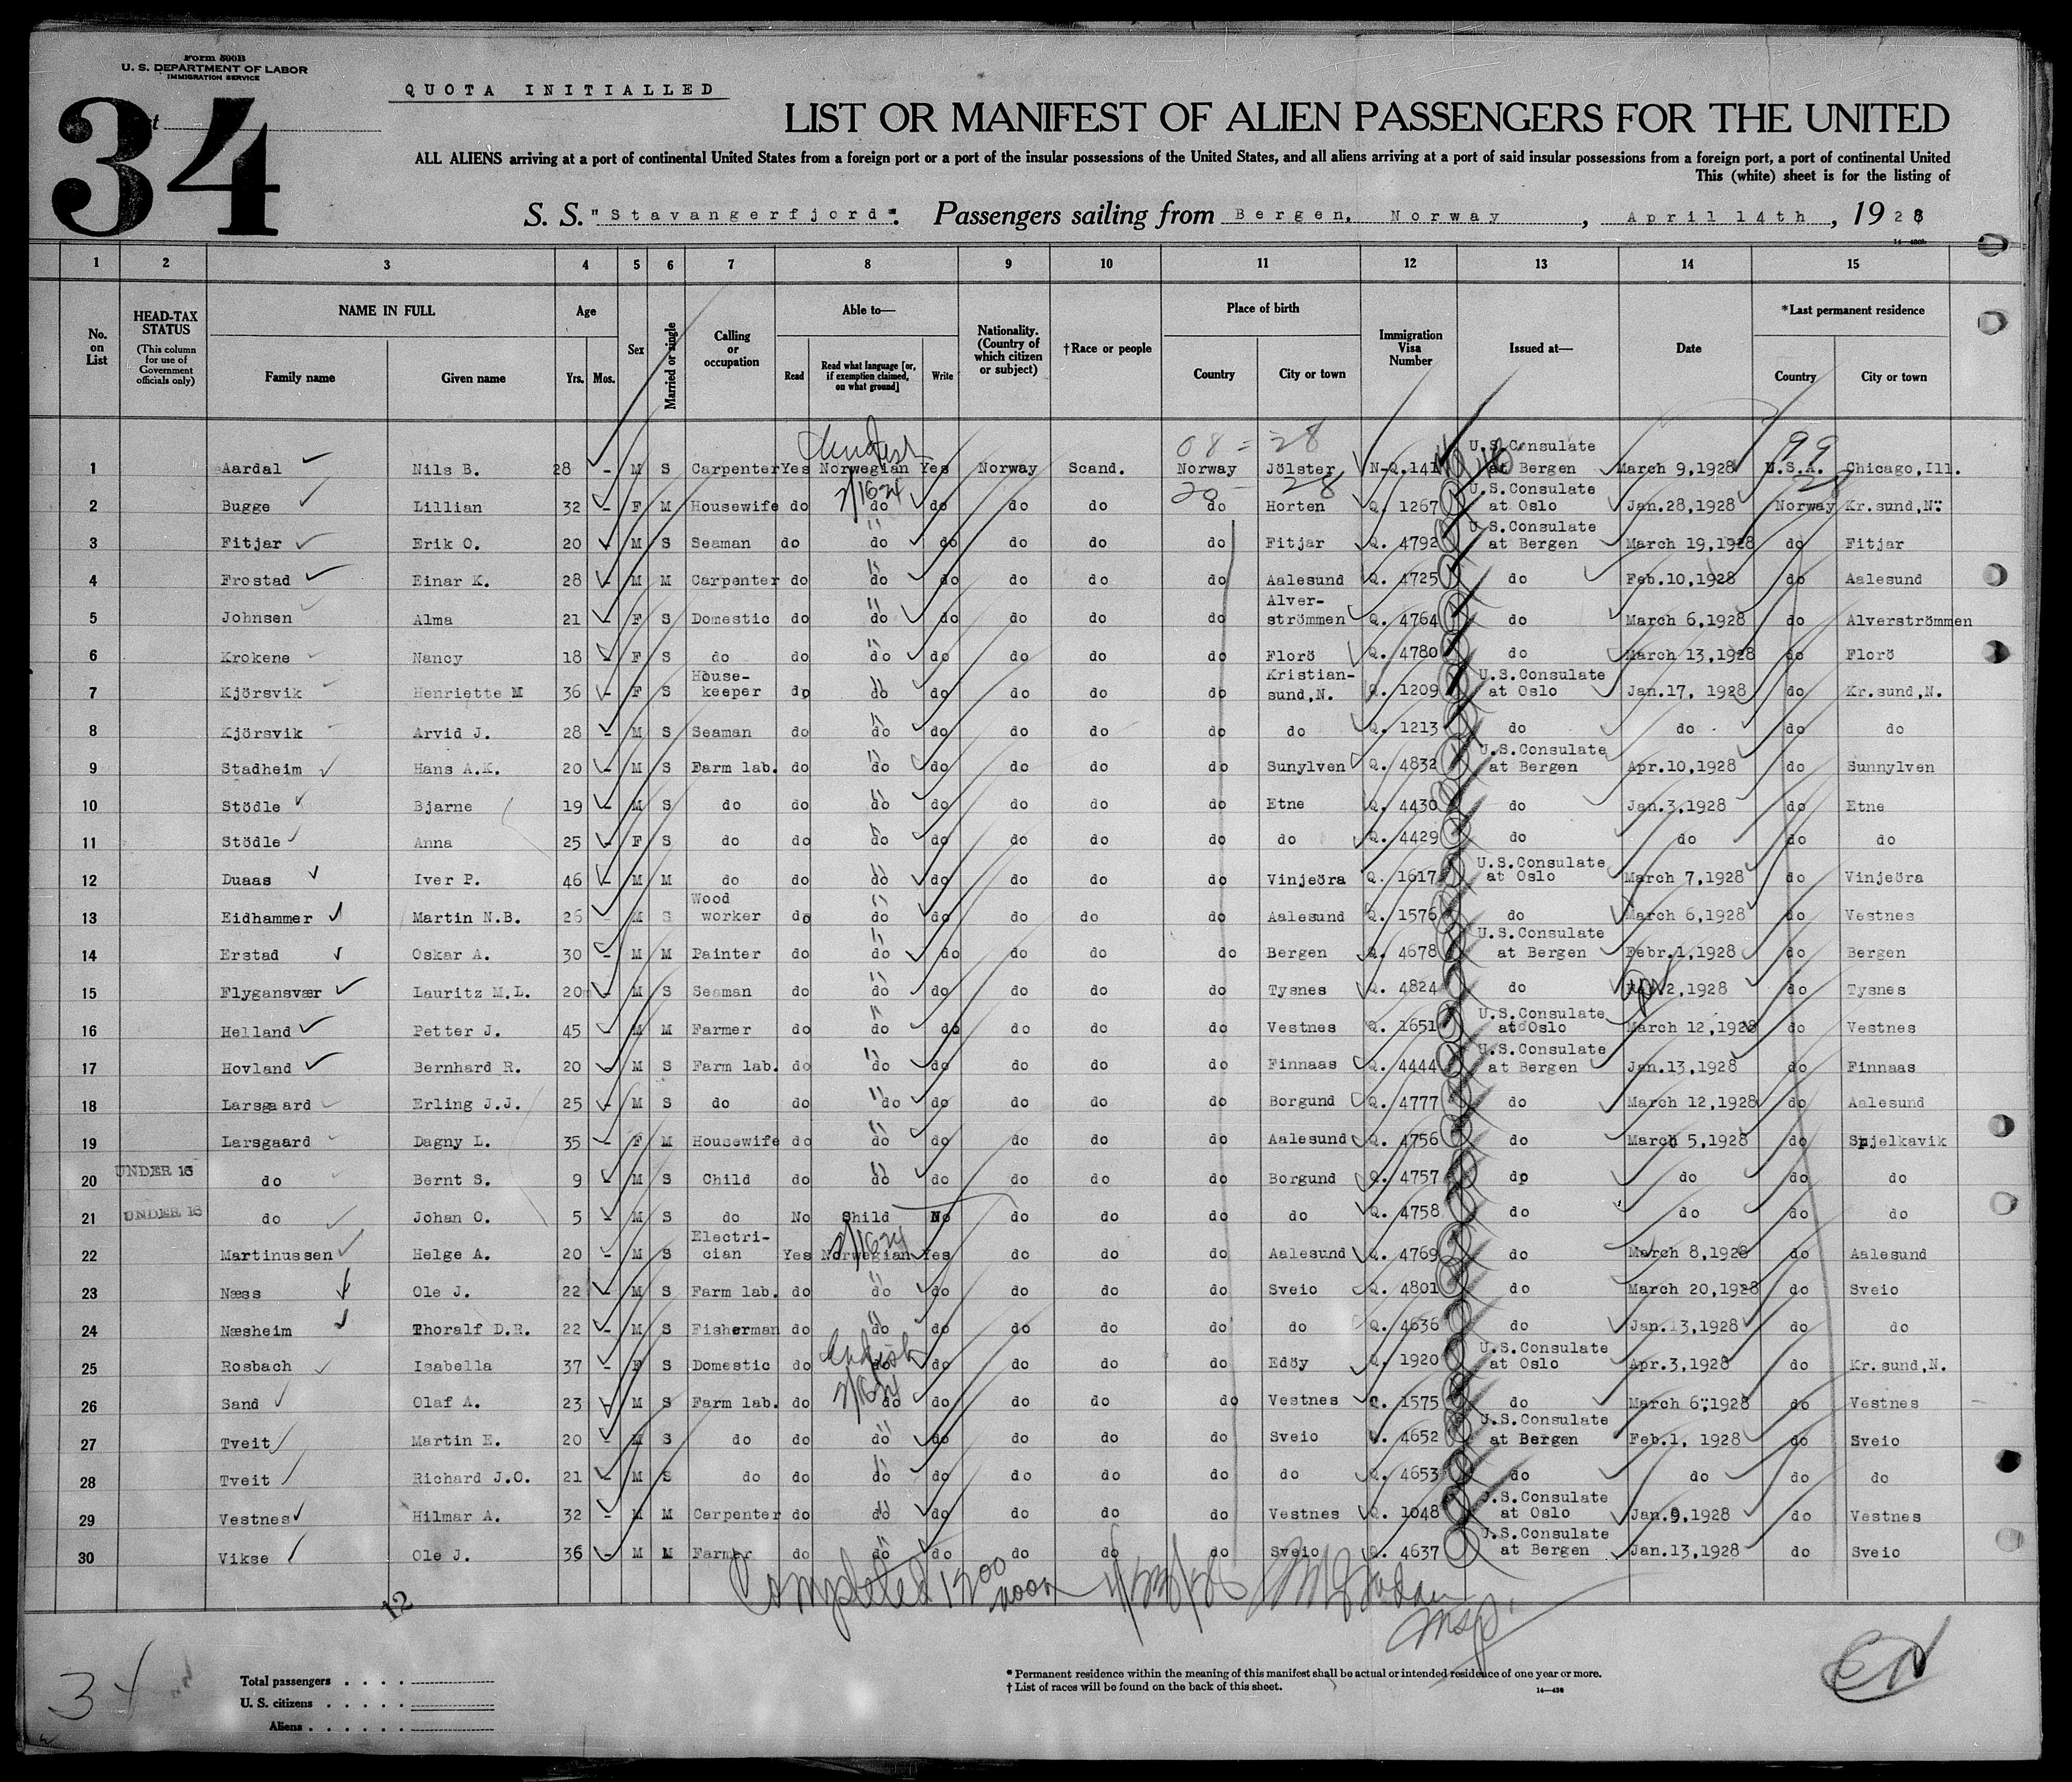 Form 500B
U. S. DEPARTMENT OF LABOR
IMMIGRATION SERVICE
QUOTA INITIALLED
34
LIST OR MANIFEST OF ALIEN PASSENGERS FOR THE UNITED
ALL ALIENS arriving at a port of continental United States from a foreign port or a port of the insular possessions of the United States, and all aliens arriving at a port of said insular possessions from a foreign port, a port of continental United
This (white) sheet is for the listing of
S. S. "Stavangerfjord". Passengers sailing from Bergen, Norway, April 14th, 1928
1 2 3 4 5 6 7 8 9 10 11 12 13 14 15
No. on List HEAD-TAX STATUS (This column for use of Government officials only) NAME IN FULL Family name Given name Age Yrs. Mos. Sex Married or single Calling or occupation Able to— Read Read what language [or, if exemption claimed, on what ground] Write Nationality. (Country of which citizen or subject) †Race or people Place of birth Country City or town Immigration Visa Number Issued at— Date *Last permanent residence Country City or town
English 08 = 28 99
1 Aardal Nils B. 28 - M S Carpenter Yes Norwegian Yes Norway Scand. Norway Jölster N-Q.141 U.S.Consulate at Bergen March 9,1928 U.S.A. Chicago, Ill.
2 Bugge Lillian 32 - F M Housewife do do do do do do Horten Q. 1267 U.S.Consulate at Oslo Jan.28,1928 Norway Kr.sund,N.
3 Fitjar Erik O. 20 - M S Seaman do do do do do do Fitjar Q. 4792 U.S.Consulate at Bergen March 19,1928 do Fitjar
4 Frostad Einar K. 28 - M M Carpenter do do do do do do Aalesund Q. 4725 do Feb.10,1928 do Aalesund
5 Johnsen Alma 21 - F S Domestic do do do do do do Alver-strömmen Q. 4764 do March 6,1928 do Alverströmmen
6 Krokene Nancy 18 - F S do do do do do do do Florö Q. 4780 do March 13,1928 do Florö
7 Kjörsvik Henriette M 36 - F S House-keeper do do do do do do Kristian-sund,N. Q. 1209 U.S.Consulate at Oslo Jan.17, 1928 do Kr.sund,N.
8 Kjörsvik Arvid J. 28 - M S Seaman do do do do do do do Q. 1213 do do do do
9 Stadheim Hans A.K. 20 - M S Farm lab. do do do do do do Sunylven Q. 4832 U.S.Consulate at Bergen Apr.10,1928 do Sunnylven
10 Stödle Bjarne 19 - M S do do do do do do do Etne Q. 4430 do Jan.3,1928 do Etne
11 Stödle Anna 25 - F S do do do do do do do do Q. 4429 do do do do
12 Duaas Iver P. 46 - M M do do do do do do do Vinjeöra Q. 1617 U.S.Consulate at Oslo March 7,1928 do Vinjeöra
13 Eidhammer Martin N.B. 26 - M S Wood worker do do do do do do Aalesund Q. 1576 do March 6,1928 do Vestnes
14 Erstad Oskar A. 30 - M M Painter do do do do do do Bergen Q. 4678 U.S.Consulate at Bergen Febr.1,1928 do Bergen
15 Flygansvær Lauritz M.L. 20 - M S Seaman do do do do do do Tysnes Q. 4824 do 2,1928 do Tysnes
16 Helland Petter J. 45 - M M Farmer do do do do do do Vestnes Q. 1651 U.S.Consulate at Oslo March 12,1928 do Vestnes
17 Hovland Bernhard R. 20 - M S Farm lab. do do do do do do Finnaas Q. 4444 U.S.Consulate at Bergen Jan.13,1928 do Finnaas
18 Larsgaard Erling J.J. 25 - M S do do do do do do do Borgund Q. 4777 do March 12,1928 do Aalesund
19 Larsgaard Dagny L. 35 - F M Housewife do do do do do do Aalesund Q. 4756 do March 5,1928 do Spjelkavik
20 UNDER 16 do Bernt S. 9 - M S Child do do do do do do Borgund Q. 4757 do do do do
21 UNDER 16 do Johan O. 5 - M S do No Child No do do do do Q. 4758 do do do do
22 Martinussen Helge A. 20 - M S Electri-cian Yes Norwegian Yes do do do Aalesund Q. 4769 do March 8,1928 do Aalesund
23 Næss Ole J. 22 - M S Farm lab. do do do do do do Sveio Q. 4801 do March 20,1928 do Sveio
24 Næsheim Thoralf D.R. 22 - M S Fisherman do do do do do do do Q. 4636 do Jan.13,1928 do do
25 Rosbach Isabella 37 - F S Domestic do English do do do do do Edöy Q. 1920 U.S.Consulate at Oslo Apr.3,1928 do Kr.sund,N.
26 Sand Olaf A. 23 - M S Farm lab. do do do do do do Vestnes Q. 1575 do March 6,1928 do Vestnes
27 Tveit Martin E. 20 - M S do do do do do do do Sveio Q. 4652 U.S.Consulate at Bergen Feb.1, 1928 do Sveio
28 Tveit Richard J.O. 21 - M S do do do do do do do do Q. 4653 do do do do
29 Vestnes Hilmar A. 32 - M M Carpenter do do do do do do Vestnes Q. 1048 U.S.Consulate at Oslo Jan.9,1928 do Vestnes
30 Vikse Ole J. 36 - M M Farmer do do do do do do Sveio Q. 4637 U.S.Consulate at Bergen Jan.13,1928 do Sveio
Completed 12 00 noon
12
34
Total passengers
U. S. citizens
Aliens
* Permanent residence within the meaning of this manifest shall be actual or intended residence of one year or more.
† List of races will be found on the back of this sheet.